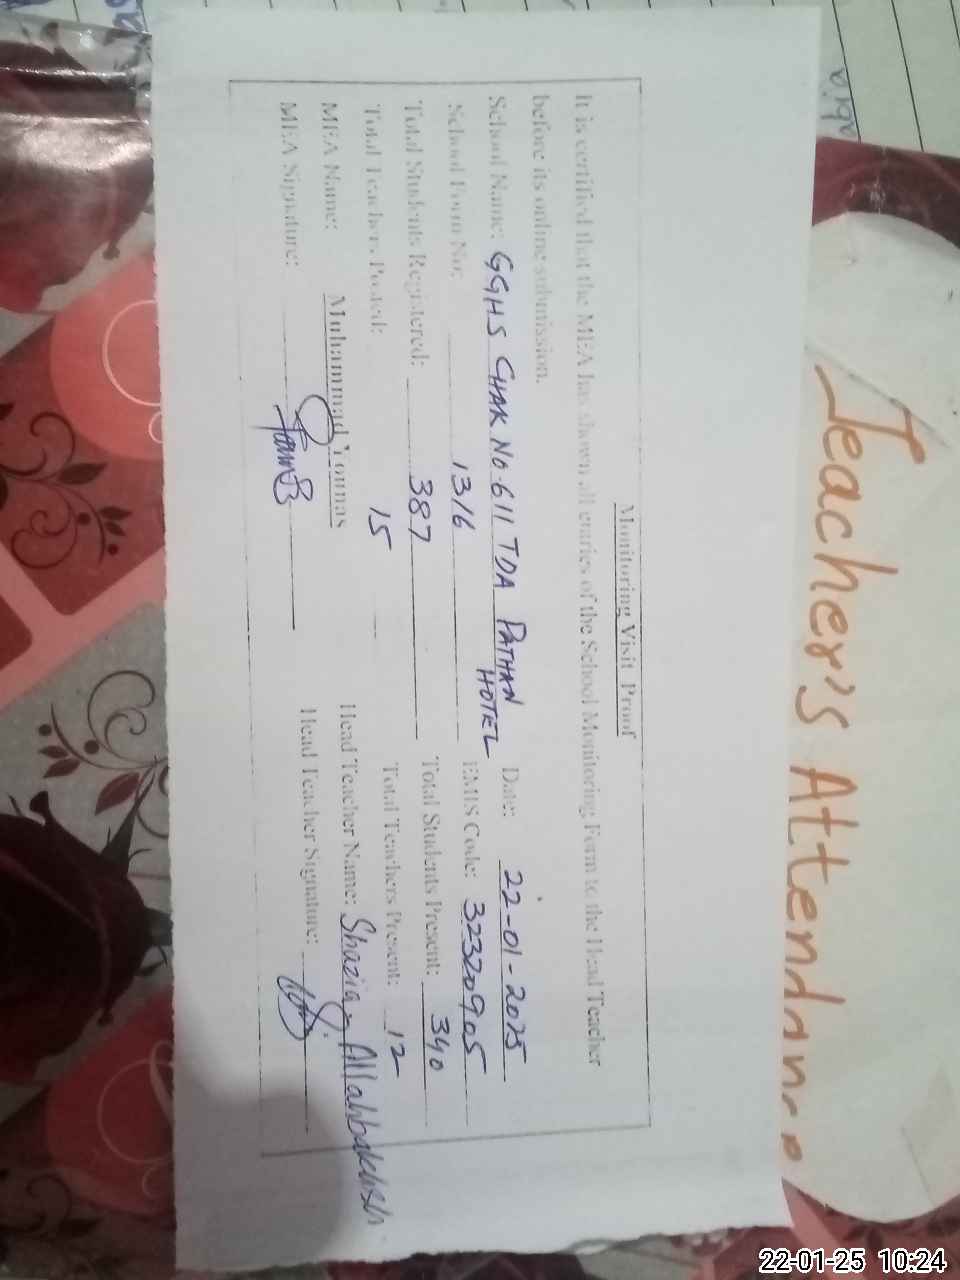 Monitoring Visit Proof
It is certified that the MEA has shown all entries of the School Monitoring Form to the Head Teacher
before its online submission.
School Name: GGHS CHAK NO.611 TDA PATHAN HOTEL Date: 22-01-2025
School Form No: 1316 EMIS Code: 32320905
Total Students Registered: 387 Total Students Present: 340
Total Teachers Posted: 15 Total Teachers Present: 12
MEA Name: Muhammad Younas Head Teacher Name: Shazia Allahbakhsh
MEA Signature: Head Teacher Signature:
Teacher's Attendance
22-01-25 10:24